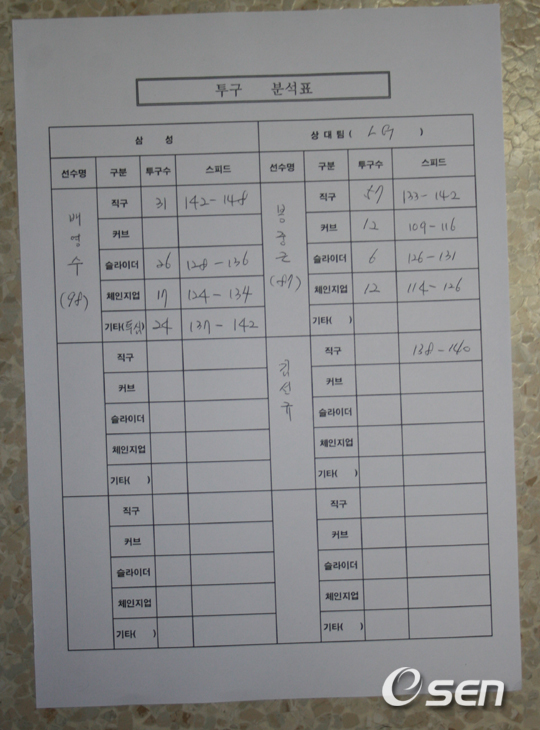 투구 분석표
삼 성 상 대 팀 ( LG )
선수명 구분 투구수 스피드 선수명 구분 투구수 스피드
배영수 (98) 직구 31 142-148 봉중근 (87) 직구 57 133-142
커브 커브 12 109-116
슬라이더 26 128-136 슬라이더 6 126-131
체인지업 17 124-134 체인지업 12 114-126
기타(투심) 24 137-142 기타( )
직구 김선규 직구 138-140
커브 커브
슬라이더 슬라이더
체인지업 체인지업
기타( ) 기타( )
직구 직구
커브 커브
슬라이더 슬라이더
체인지업 체인지업
기타( ) 기타( )
OSEN